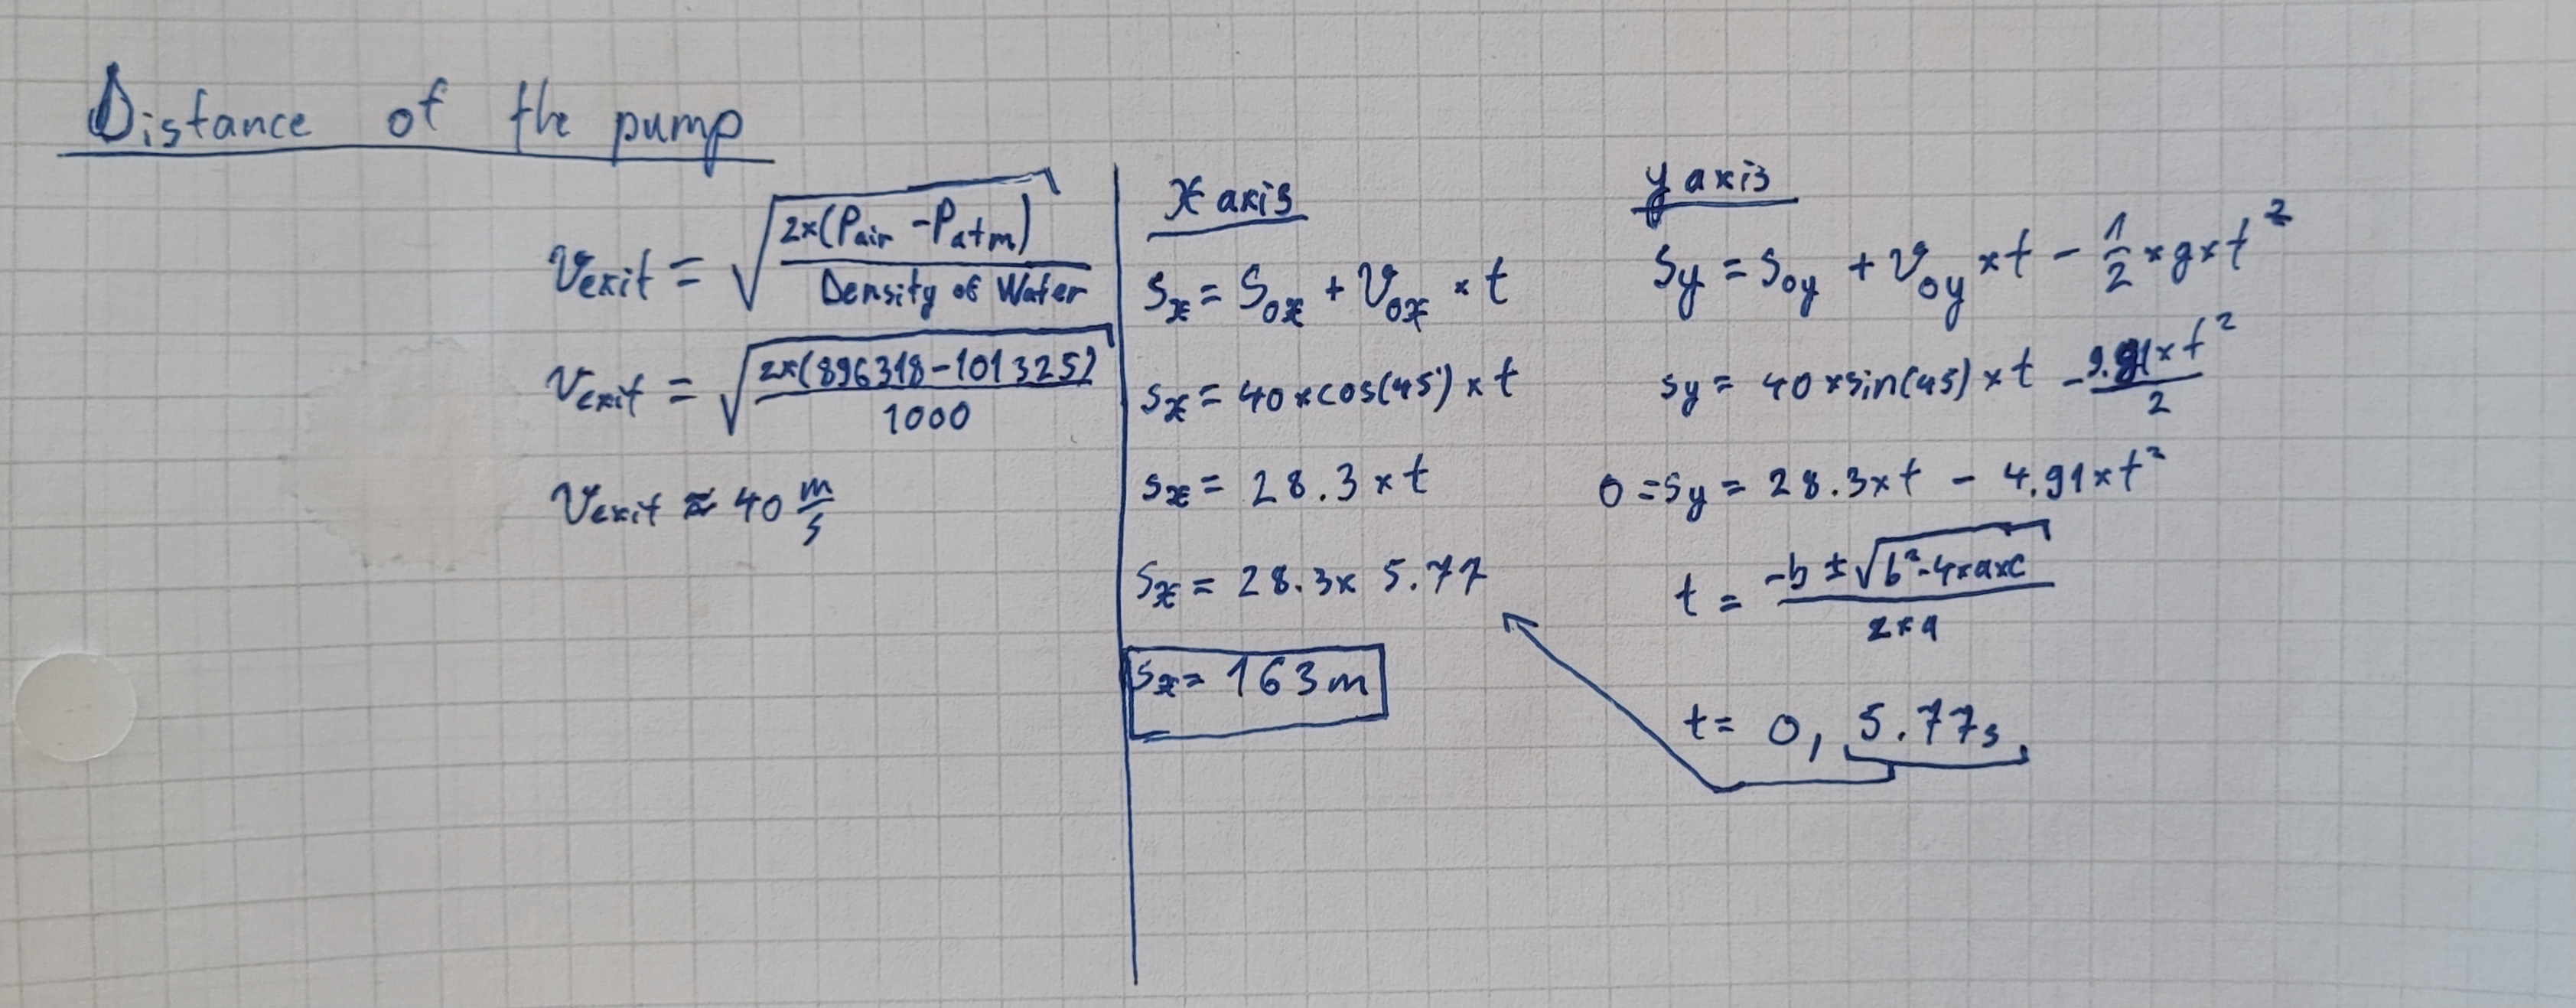 Distance of the pump
Vexit = √(2×(Pair - Patm) / Density of Water)
Vexit = √(2×(896318-101325) / 1000)
Vexit ≈ 40 m/s
X axis
Sx = S0x + V0x × t
Sx = 40×cos(45°) × t
Sx = 28.3×t
Sx = 28.3× 5.77
Sx = 163m
y axis
Sy = S0y + V0y × t - 1/2 × g × t²
Sy = 40×sin(45) × t - 9.81×t² / 2
0 = Sy = 28.3×t - 4.91×t²
t = (-b ± √(b²-4×a×c)) / 2×a
t = 0, 5.77s